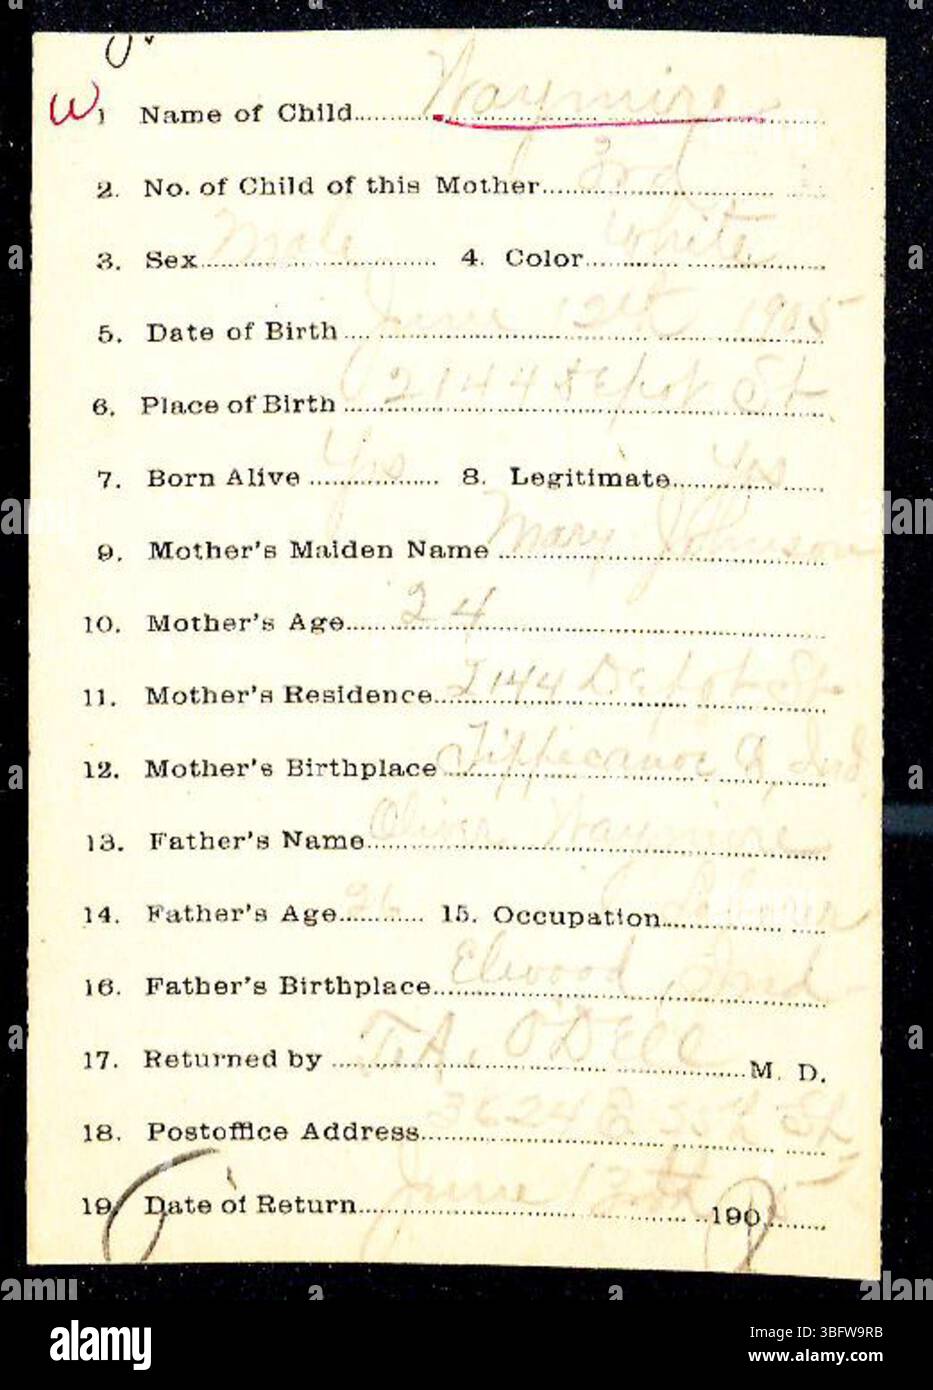 W 1 Name of Child Waymire
2. No. of Child of this Mother 3rd
3. Sex Male 4. Color White
5. Date of Birth June 12th 1905
6. Place of Birth 2144 Depot St
7. Born Alive Yes 8. Legitimate Yes
9. Mother's Maiden Name Mary Johnson
10. Mother's Age 24
11. Mother's Residence 2144 Depot St
12. Mother's Birthplace Tippecanoe Co Ind
13. Father's Name Oliver Waymire
14. Father's Age 26 15. Occupation Laborer
16. Father's Birthplace Elwood, Ind
17. Returned by T. A. O'Dell M. D.
18. Postoffice Address St
19 Date of Return June 190 5
alamy
Image ID: 3BFW9RB
www.alamy.com